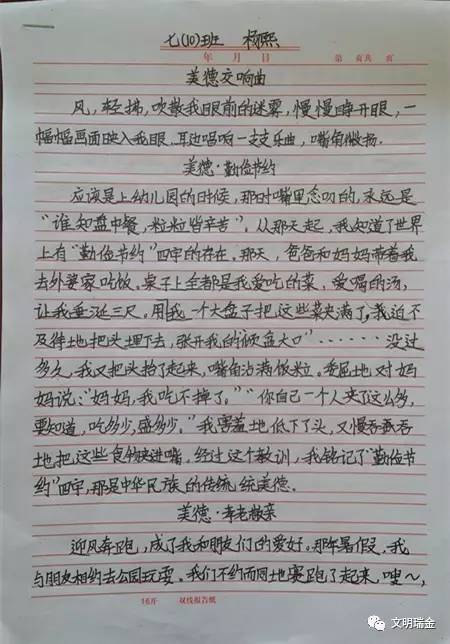 七(10)班 杨熙
年 月 日
第 页共 页
美德交响曲
风,轻拂,吹散我眼前的迷雾,慢慢睁开眼,一
幅幅画面映入我眼.耳边唱响一支支乐曲,嘴角微扬.
美德·勤俭节约
应该是上幼儿园的时候,那时嘴里念叨的,永远是
“谁知盘中餐,粒粒皆辛苦”。从那天起,我知道了世界
上有“勤俭节约”四字的存在。那天,爸爸和妈妈带着我
去外婆家吃饭。桌子上全都是我爱吃的菜,爱喝的汤,
让我垂涎三尺。用我一个大盘子把这些菜夹满了,我迫不
及待地把头埋下去,张开我的“血盆大口”……没过
多久,我又把头抬了起来,嘴角沾满饭粒。委屈地对妈
妈说:“妈妈,我吃不掉了。”“你自己一个人夹了这么多,
要知道,吃多少,盛多少。”我害羞地低下了头,又慢吞吞
地把这些食物挟进嘴。经过这个教训,我铭记了“勤俭节
约”四字,那是中华民族的传统统美德.
美德·孝老敬亲
迎风奔跑,成了我和朋友们的爱好。那年暑假,我
与朋友相约去公园玩耍。我们不约而同地赛跑了起来,嗖~,
16开 双线报告纸
文明瑞金